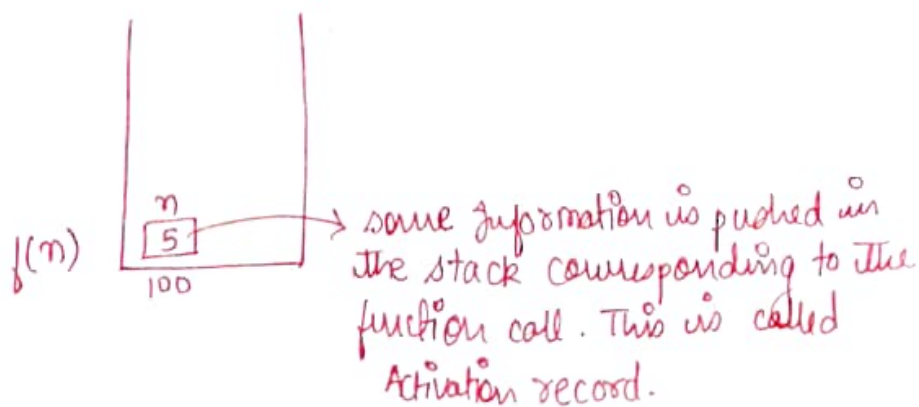 n
5
f(n)
100
some Information is pushed in
the stack corresponding to the
function call. This is called
Activation record.